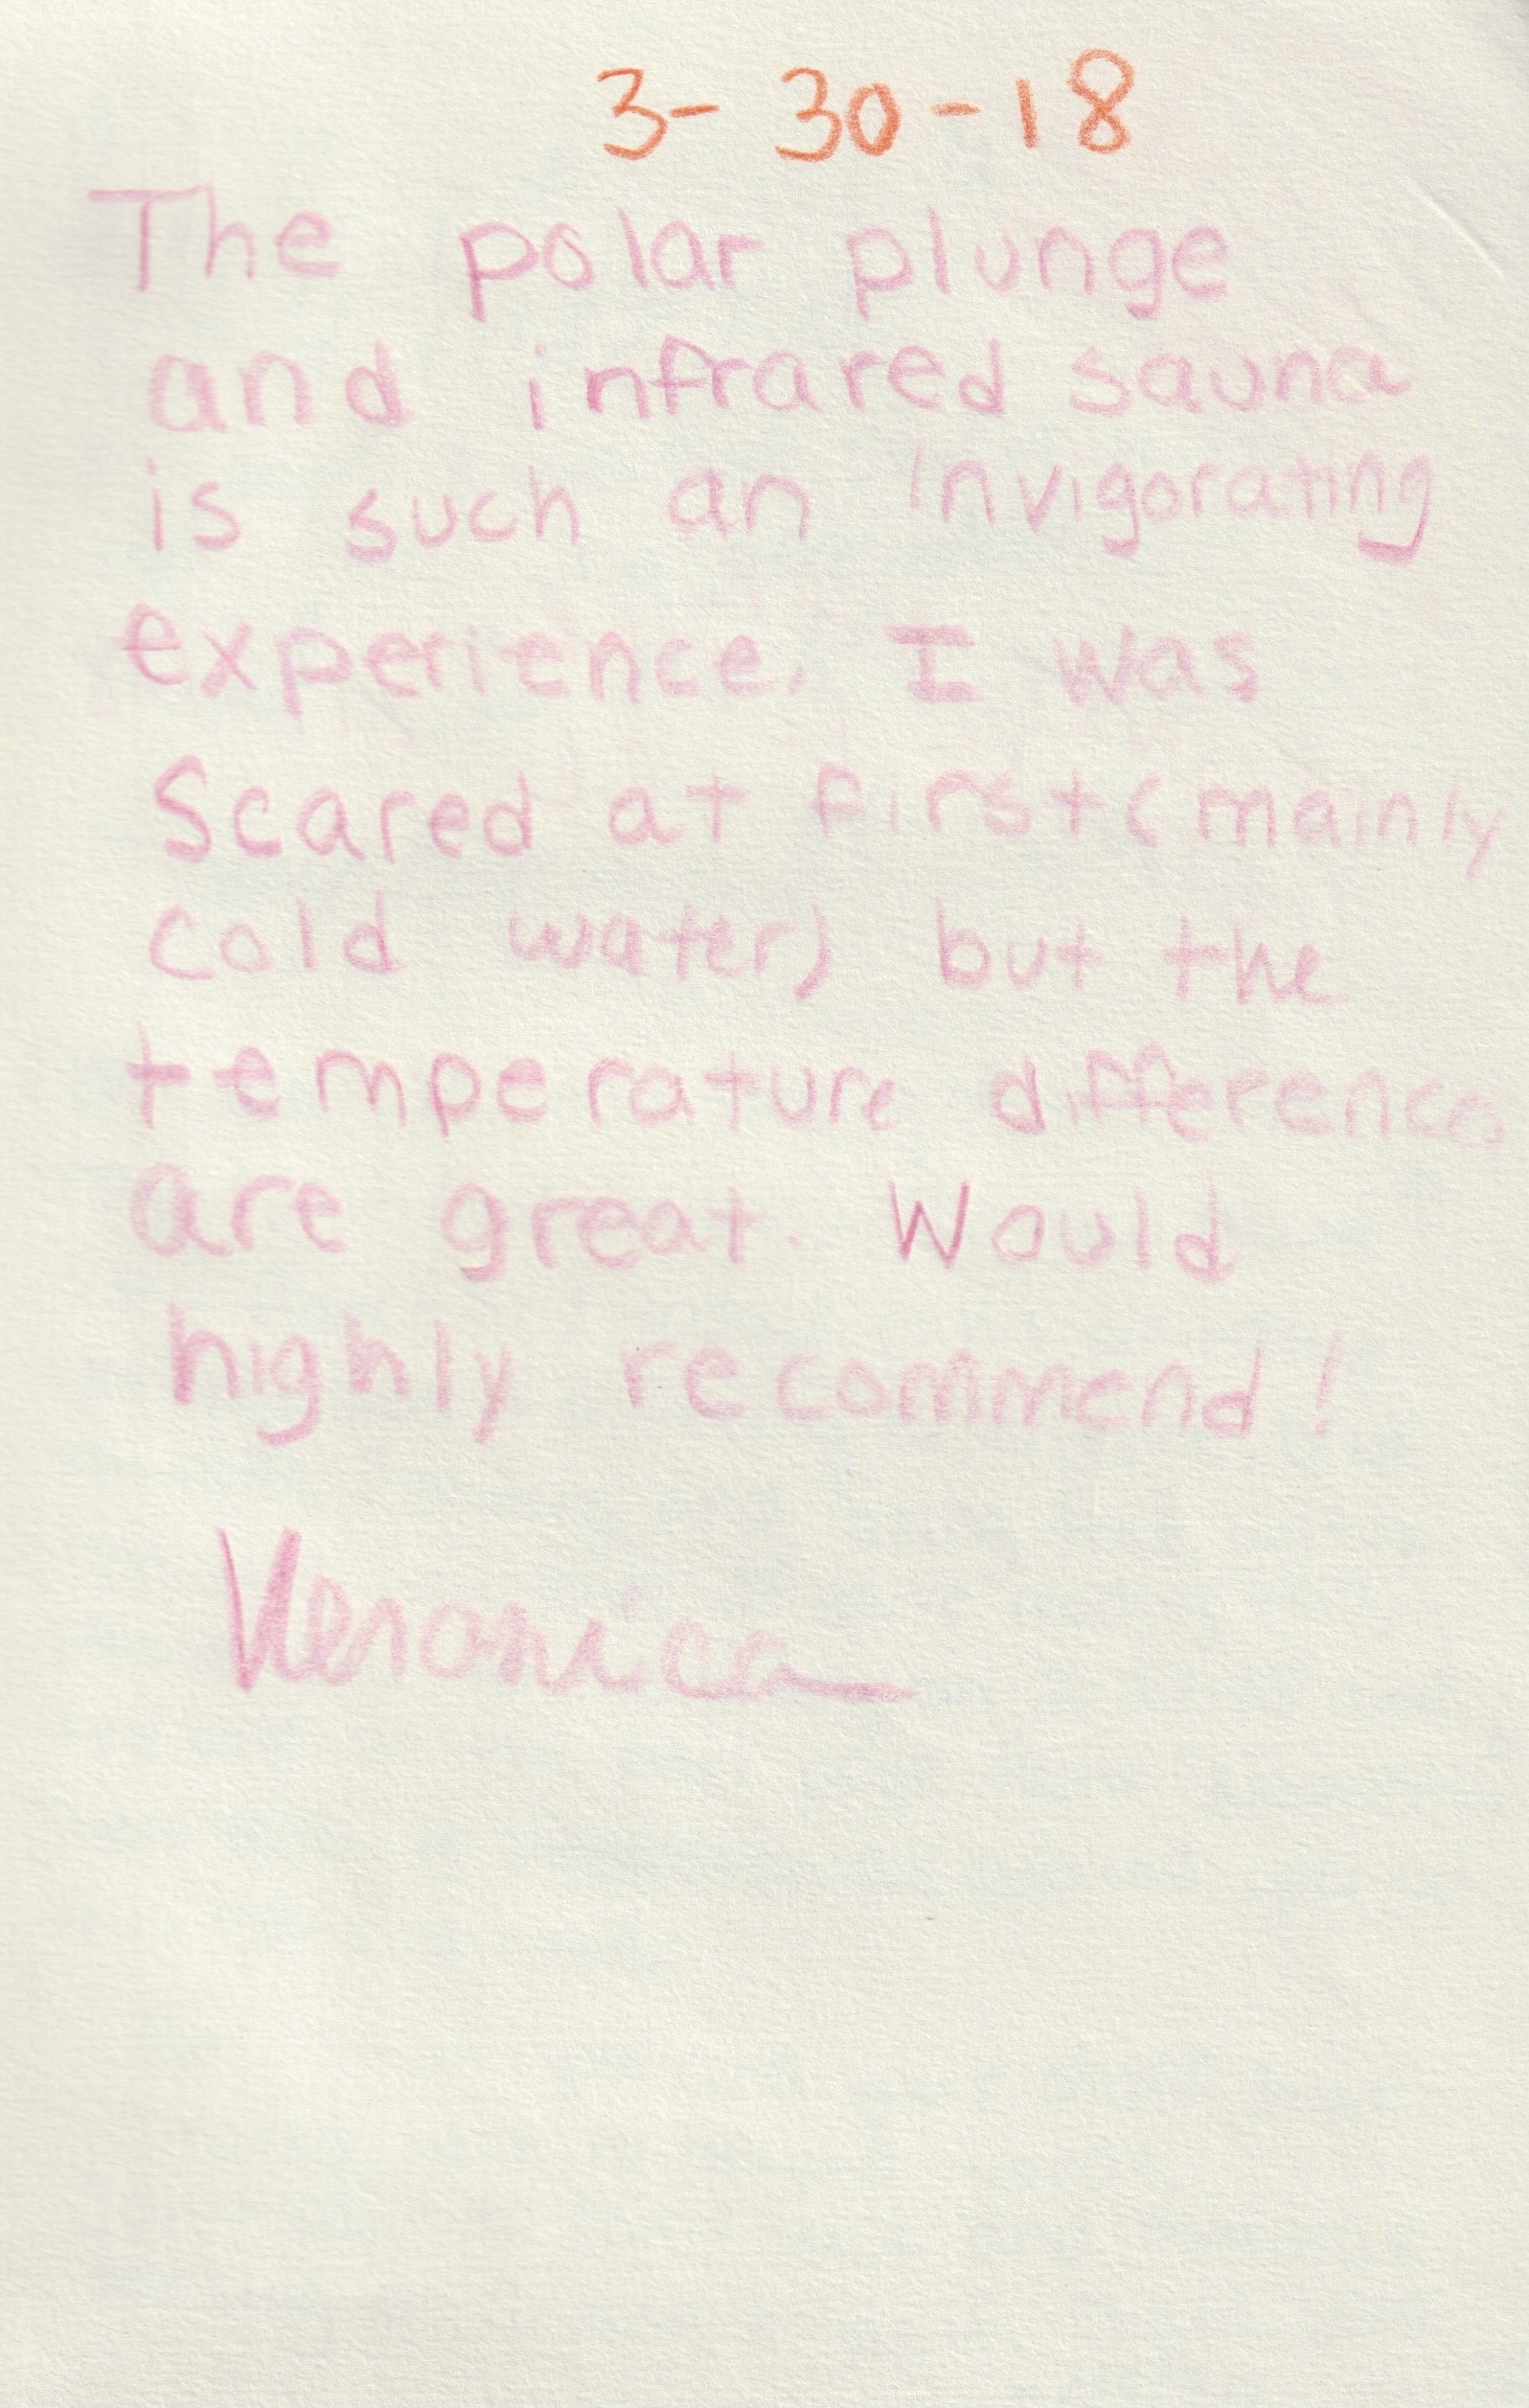 3-30-18
The polar plunge
and infrared sauna
is such an invigorating
experience. I was
Scared at first (mainly
cold water) but the
temperature differences
are great. Would
highly recommend!
Veronica